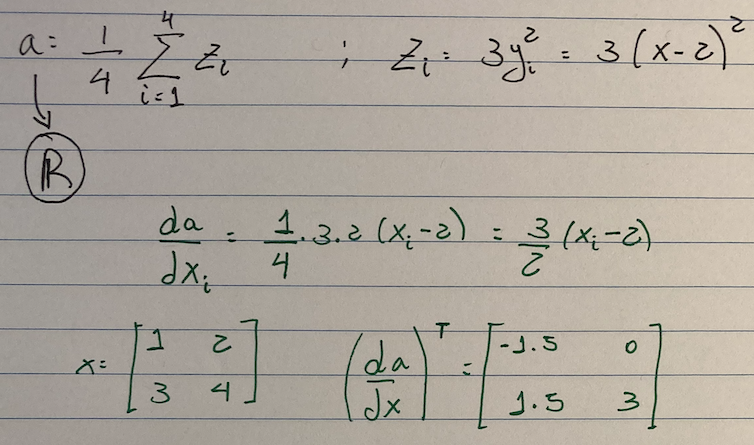 a = 1/4 ∑_{i=1}^{4} z_i ; z_i = 3y_i^2 = 3(x-2)^2
ℝ
da/dx_i = 1/4 · 3 · 2 (x_i - 2) = 3/2 (x_i - 2)
x = [1 2; 3 4] (da/dx)^T = [-1.5 0; 1.5 3]